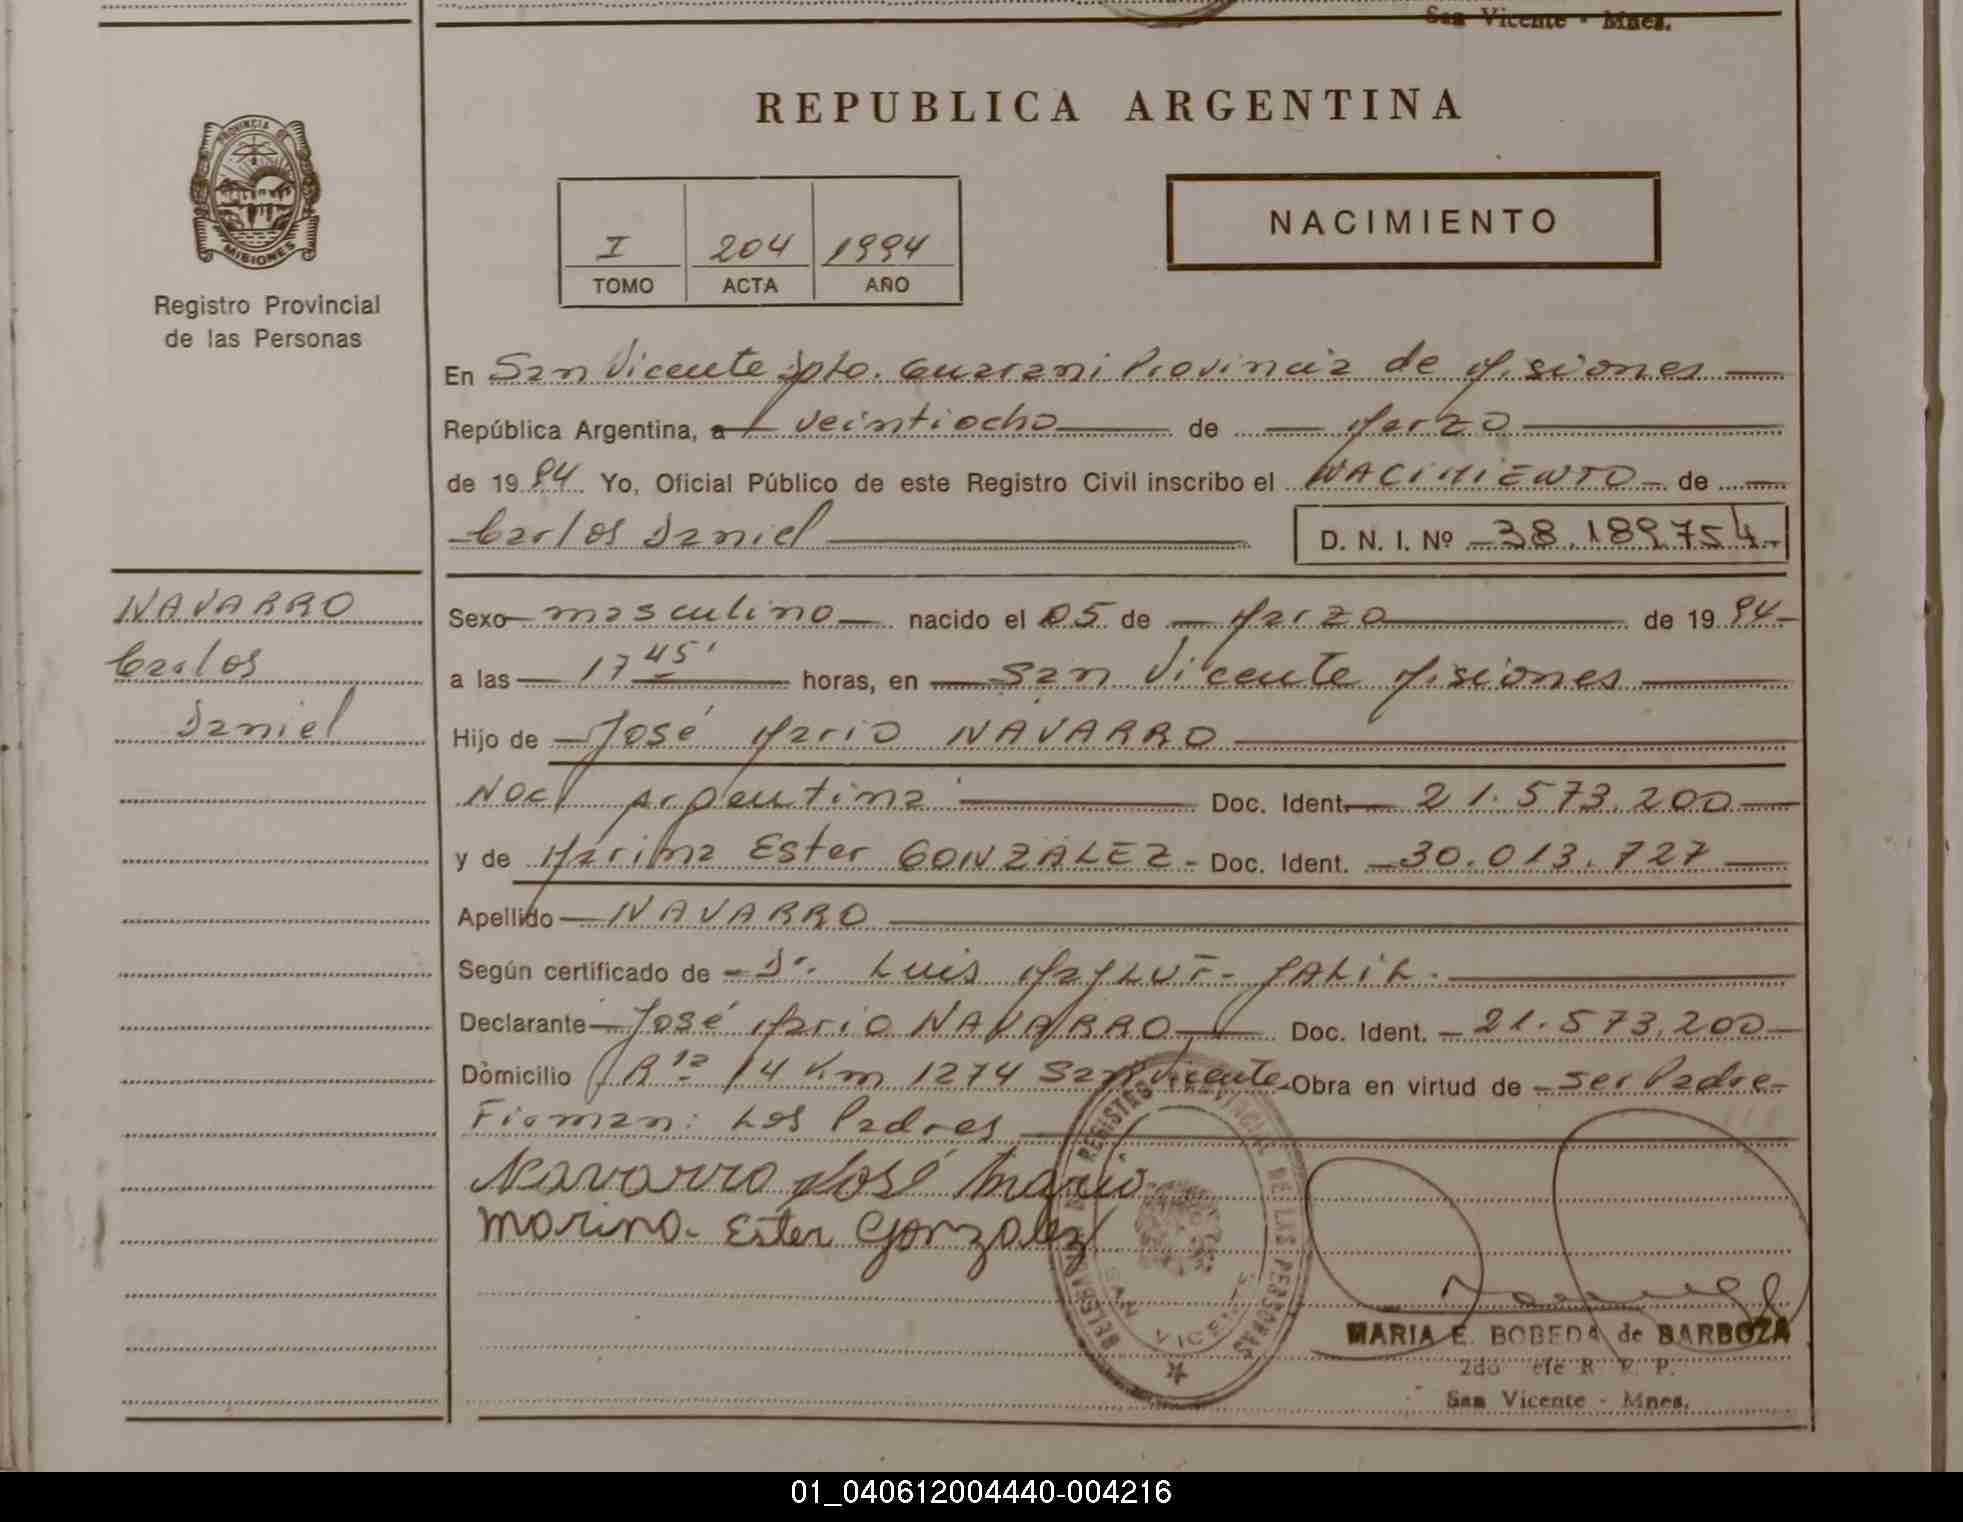 San Vicente - Mnes.
REPUBLICA ARGENTINA
PROVINCIA DE
MISIONES
Registro Provincial
de las Personas
I 204 1994
TOMO ACTA AÑO
NACIMIENTO
En San Vicente Dpto. Guarani Provincia de Misiones
República Argentina, a veintiocho de Marzo
de 1994 Yo, Oficial Público de este Registro Civil inscribo el NACIMIENTO de
Carlos Daniel D. N. I. Nº 38.189.754
NAVARRO
Carlos
Daniel
Sexo masculino nacido el 05 de Marzo de 1994
a las 17 45' horas, en San Vicente Misiones
Hijo de José Mario NAVARRO
Nac Argentina Doc. Ident. 21.573.200
y de Marina Ester GONZALEZ - Doc. Ident. 30.013.727
Apellido NAVARRO
Según certificado de Dr. Luis JALIL.
Declarante José Mario NAVARRO Doc. Ident. 21.573.200
Domicilio Rta 14 Km 1274 San Vicente Obra en virtud de ser Padre
Firman: Los Padres
Navarro José Mario
Marina Ester Gonzalez
REGISTRO PROVINCIAL DE LAS PERSONAS
SAN VICENTE
MARIA E. BOBEDA de BARBOZA
2do efe R. P. P.
San Vicente - Mnes.
01_040612004440-004216